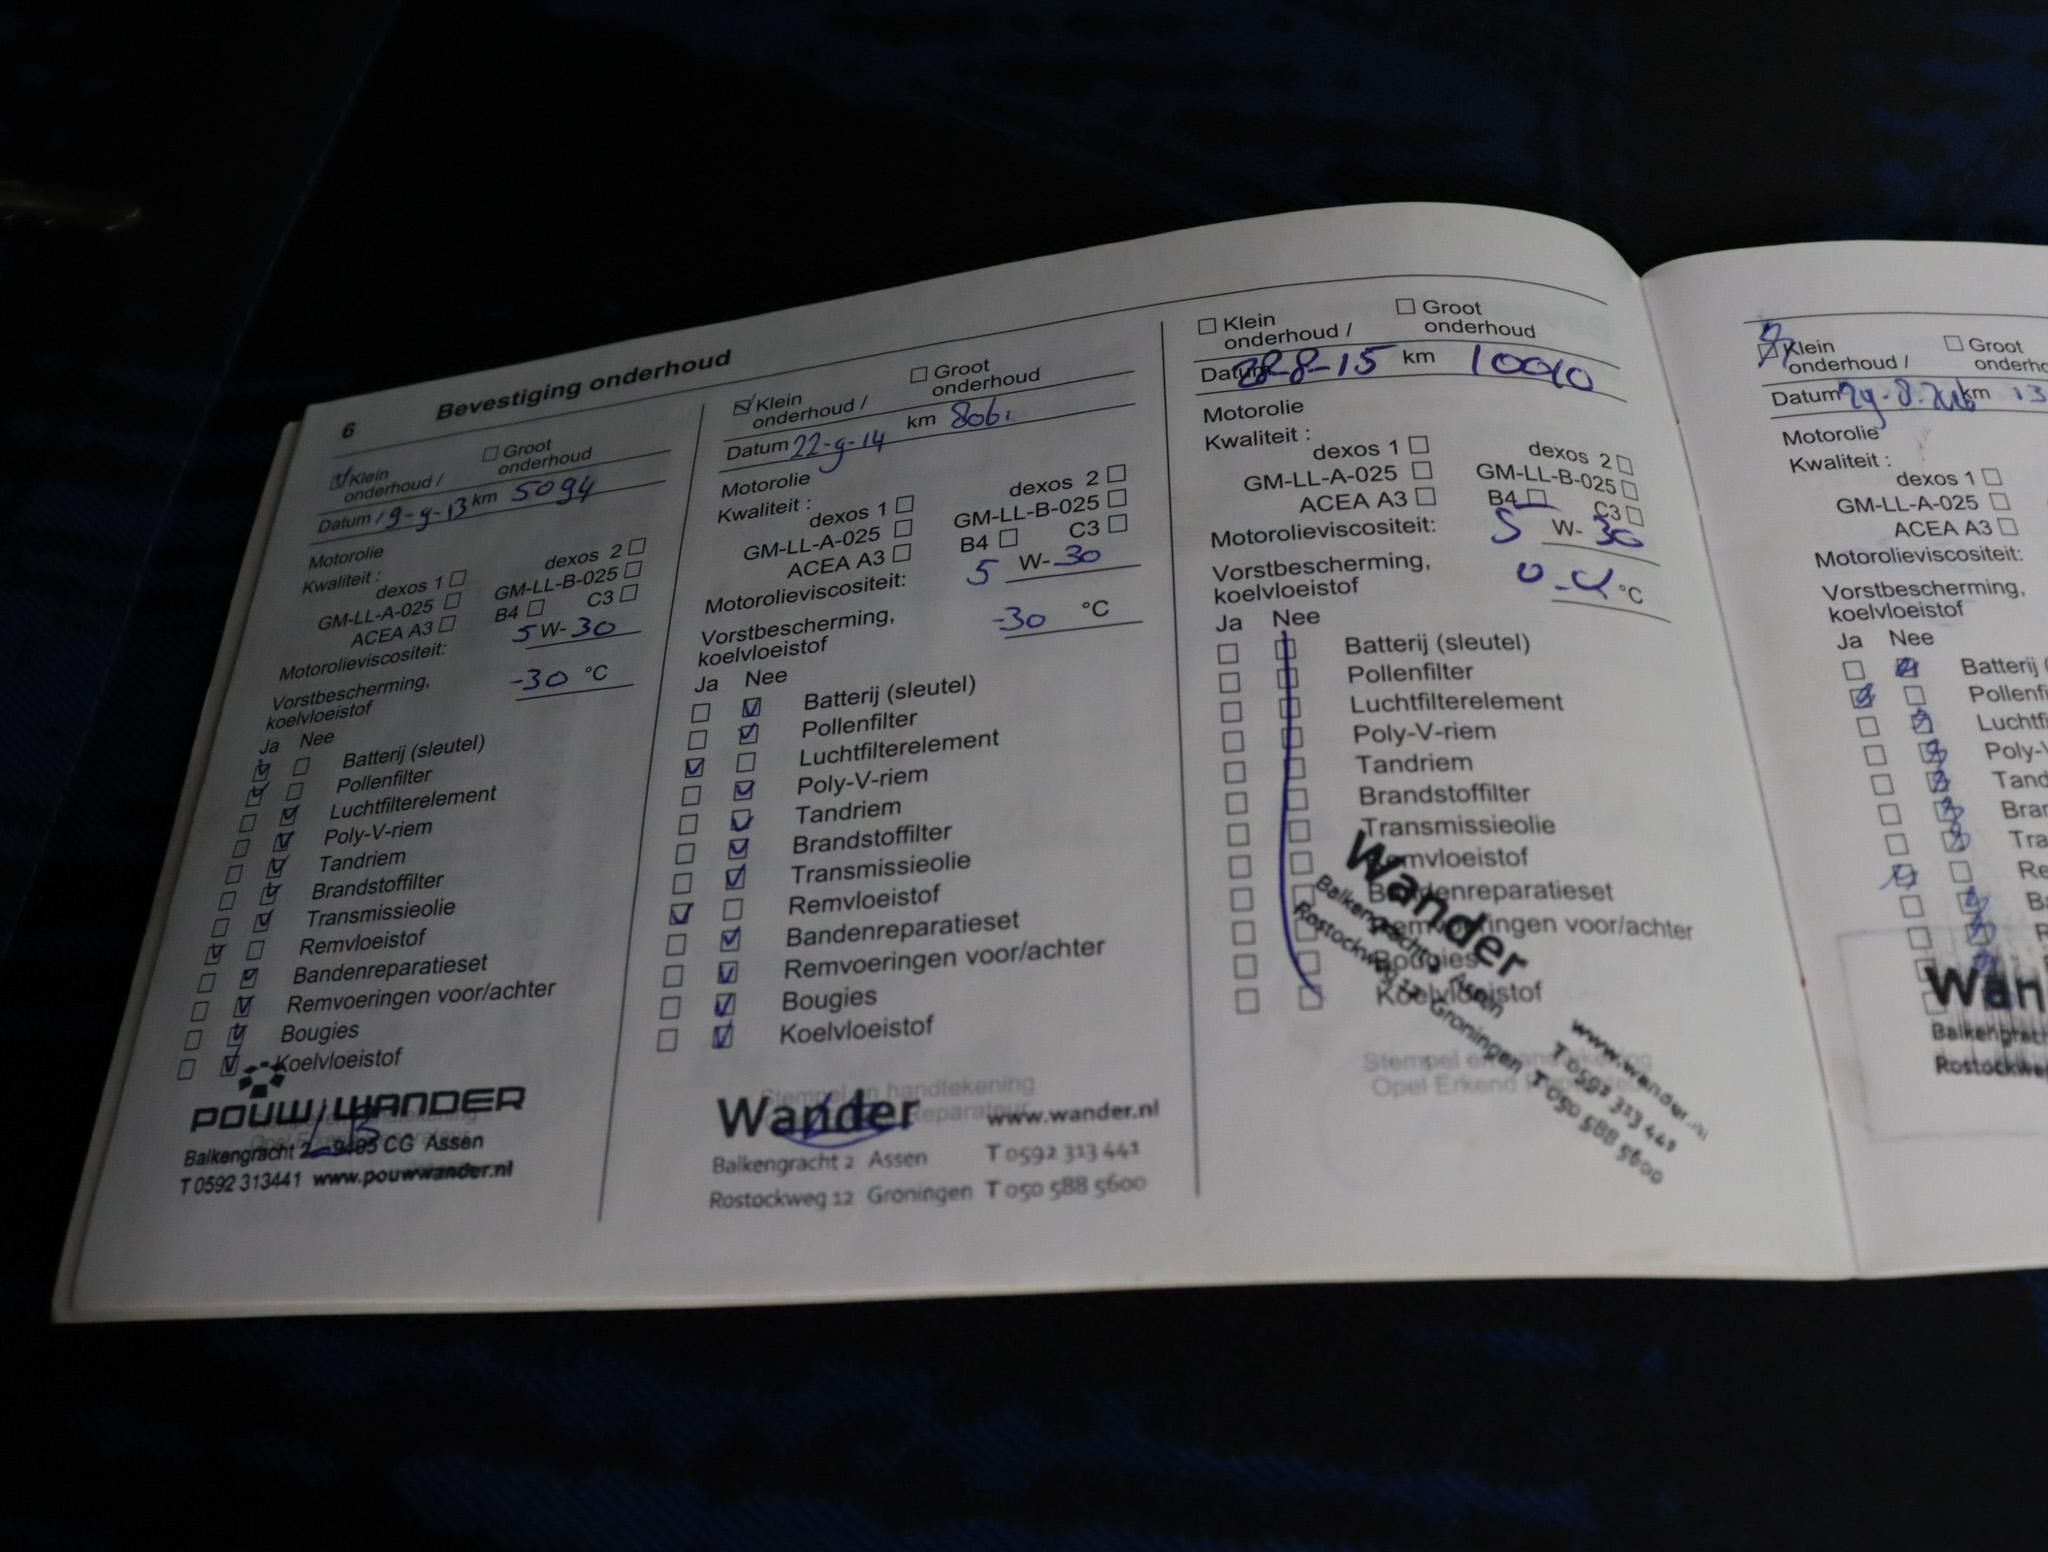 6 Bevestiging onderhoud
Klein onderhoud / Groot onderhoud
Datum 19-9-13 km 5094
Motorolie
Kwaliteit :
dexos 1 dexos 2
GM-LL-A-025 GM-LL-B-025
ACEA A3 B4 C3
Motorolieviscositeit: 5 W-30
Vorstbescherming, koelvloeistof -30 °C
Ja Nee
Batterij (sleutel)
Pollenfilter
Luchtfilterelement
Poly-V-riem
Tandriem
Brandstoffilter
Transmissieolie
Remvloeistof
Bandenreparatieset
Remvoeringen voor/achter
Bougies
Koelvloeistof
POUW WANDER
Balkengracht 2 9405 CG Assen
T 0592 313441 www.pouwwander.nl
Klein onderhoud / Groot onderhoud
Datum 22-9-14 km
Motorolie
Kwaliteit :
dexos 1 dexos 2
GM-LL-A-025 GM-LL-B-025
ACEA A3 B4 C3
Motorolieviscositeit: 5 W-30
Vorstbescherming, koelvloeistof -30 °C
Ja Nee
Batterij (sleutel)
Pollenfilter
Luchtfilterelement
Poly-V-riem
Tandriem
Brandstoffilter
Transmissieolie
Remvloeistof
Bandenreparatieset
Remvoeringen voor/achter
Bougies
Koelvloeistof
Stempel en handtekening
Reparateur
Wander www.wander.nl
Balkengracht 2 Assen T 0592 313 441
Rostockweg 12 Groningen T 050 588 5600
Klein onderhoud / Groot onderhoud
Datum 28-8-15 km
Motorolie
Kwaliteit :
dexos 1 dexos 2
GM-LL-A-025 GM-LL-B-025
ACEA A3 B4 C3
Motorolieviscositeit: 5 W-30
Vorstbescherming, koelvloeistof °C
Ja Nee
Batterij (sleutel)
Pollenfilter
Luchtfilterelement
Poly-V-riem
Tandriem
Brandstoffilter
Transmissieolie
Remvloeistof
Bandenreparatieset
Remvoeringen voor/achter
Bougies
Koelvloeistof
Stempel en handtekening
Opel Erkend Reparateur
Wander www.wander.nl
Balkengracht 2 Assen T 0592 313 441
Rostockweg 12 Groningen T 050 588 5600
Klein onderhoud / Groot onderho
Datum km 13
Motorolie
Kwaliteit :
dexos 1
GM-LL-A-025
ACEA A3
Motorolieviscositeit:
Vorstbescherming,
koelvloeistof
Ja Nee
Batterij (
Pollenfi
Luchtf
Poly-V
Tand
Bran
Tra
Re
Ba
R
Wan
Balkengrach
Rostockwe